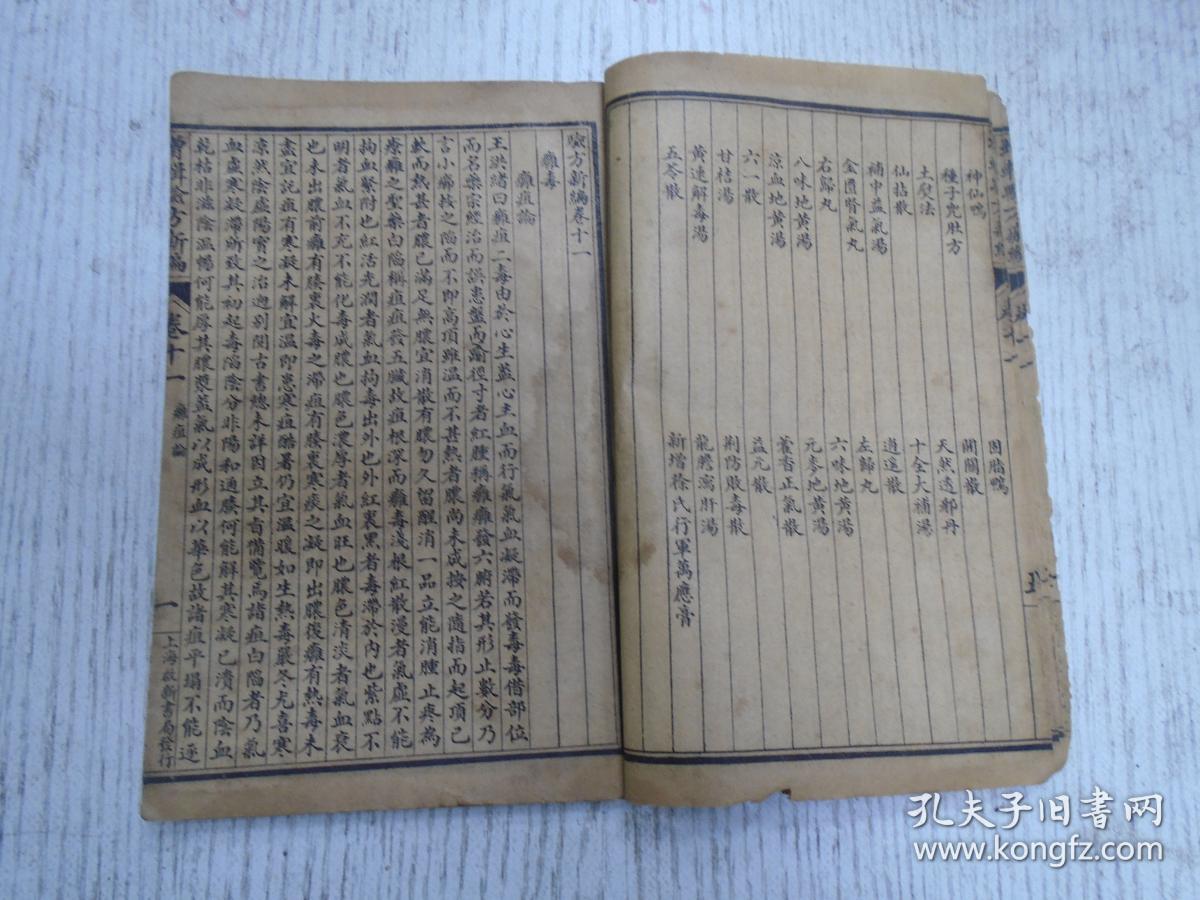 神仙鴨
種子兜肚方
土熨法
仙拈散
補中益氣湯
金匱腎氣丸
右歸丸
八味地黄湯
涼血地黄湯
六一散
甘桔湯
黄連解毒湯
五苓散
固胎鴨
開關散
天然透邪丹
十全大補湯
逍遥散
左歸丸
六味地黄湯
元麥地黄湯
藿香正氣散
益元散
荆防敗毒散
龍膽瀉肝湯
新增徐氏行軍萬應膏
驗方新編卷十一
癰毒
癰疽論
王洪緒曰癰疽二毒由於心生蓋心主血而行氣氣血凝滯而發毒毒借部位
而名樂宗經治而誤患盤而踰徑寸者紅腫稱癰癰發六腑若其形止數分乃
言小癤按之陷而不即高頂雖温而不甚熱者膿尚未成按之隨指而起頂已
軟而熱甚者膿已滿足無膿宜消散有膿勿久留醒消一品立能消腫止疼為
療癰之聖藥白陷稱疽疽發五臟故疽根深而癰毒淺根紅散漫者氣虛不能
拘血緊附也紅活光潤者氣血拘毒出外也外紅裏黑者毒滯於內也紫點不
明者氣血不充不能化毒成膿也膿色濃厚者氣血旺也膿色清淡者氣血衰
也未出膿前癰有腠裏火毒之滯疽有腠裏寒痰之凝即出膿後癰有熱毒未
盡宜託疽有寒凝未解宜温即患寒疽酷暑仍宜温暖如生熱毒嚴冬尤喜寒
凉然陰虛陽實之治迥别閲古書總未詳因立其旨備覽焉諸疽白陷者乃氣
血虛寒凝滯所致其初起毒陷陰分非陽和通腠何能解其寒凝已潰而陰血
乾枯非滋陰温暢何能厚其膿漿蓋氣以成形血以華色故諸疽平塌不能逐
增輯驗方新編
卷十一
癰疽論
一
上海啟新書局發行
孔夫子旧书网
www.kongfz.com